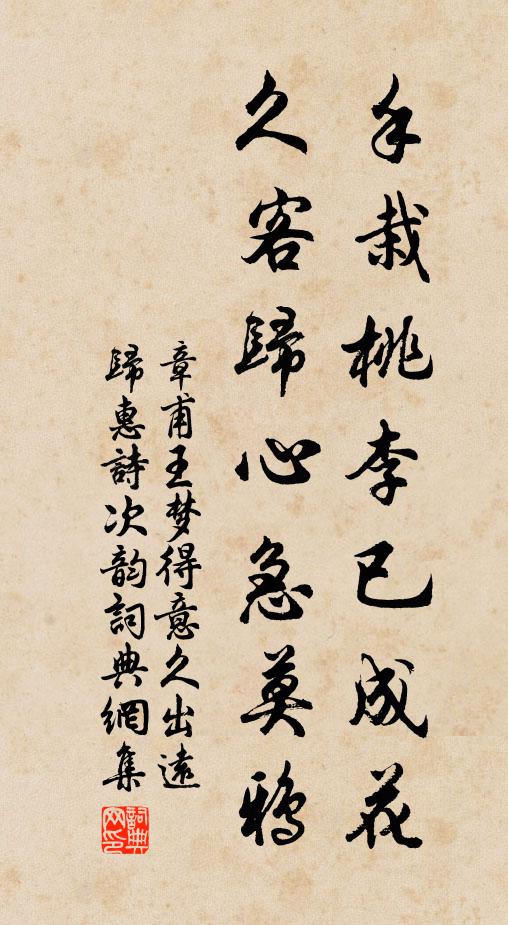 手栽桃李已成花
久客歸心急莫鴉
章甫王梦得意久出遠
歸惠詩次韵詞典網集
詞典网印